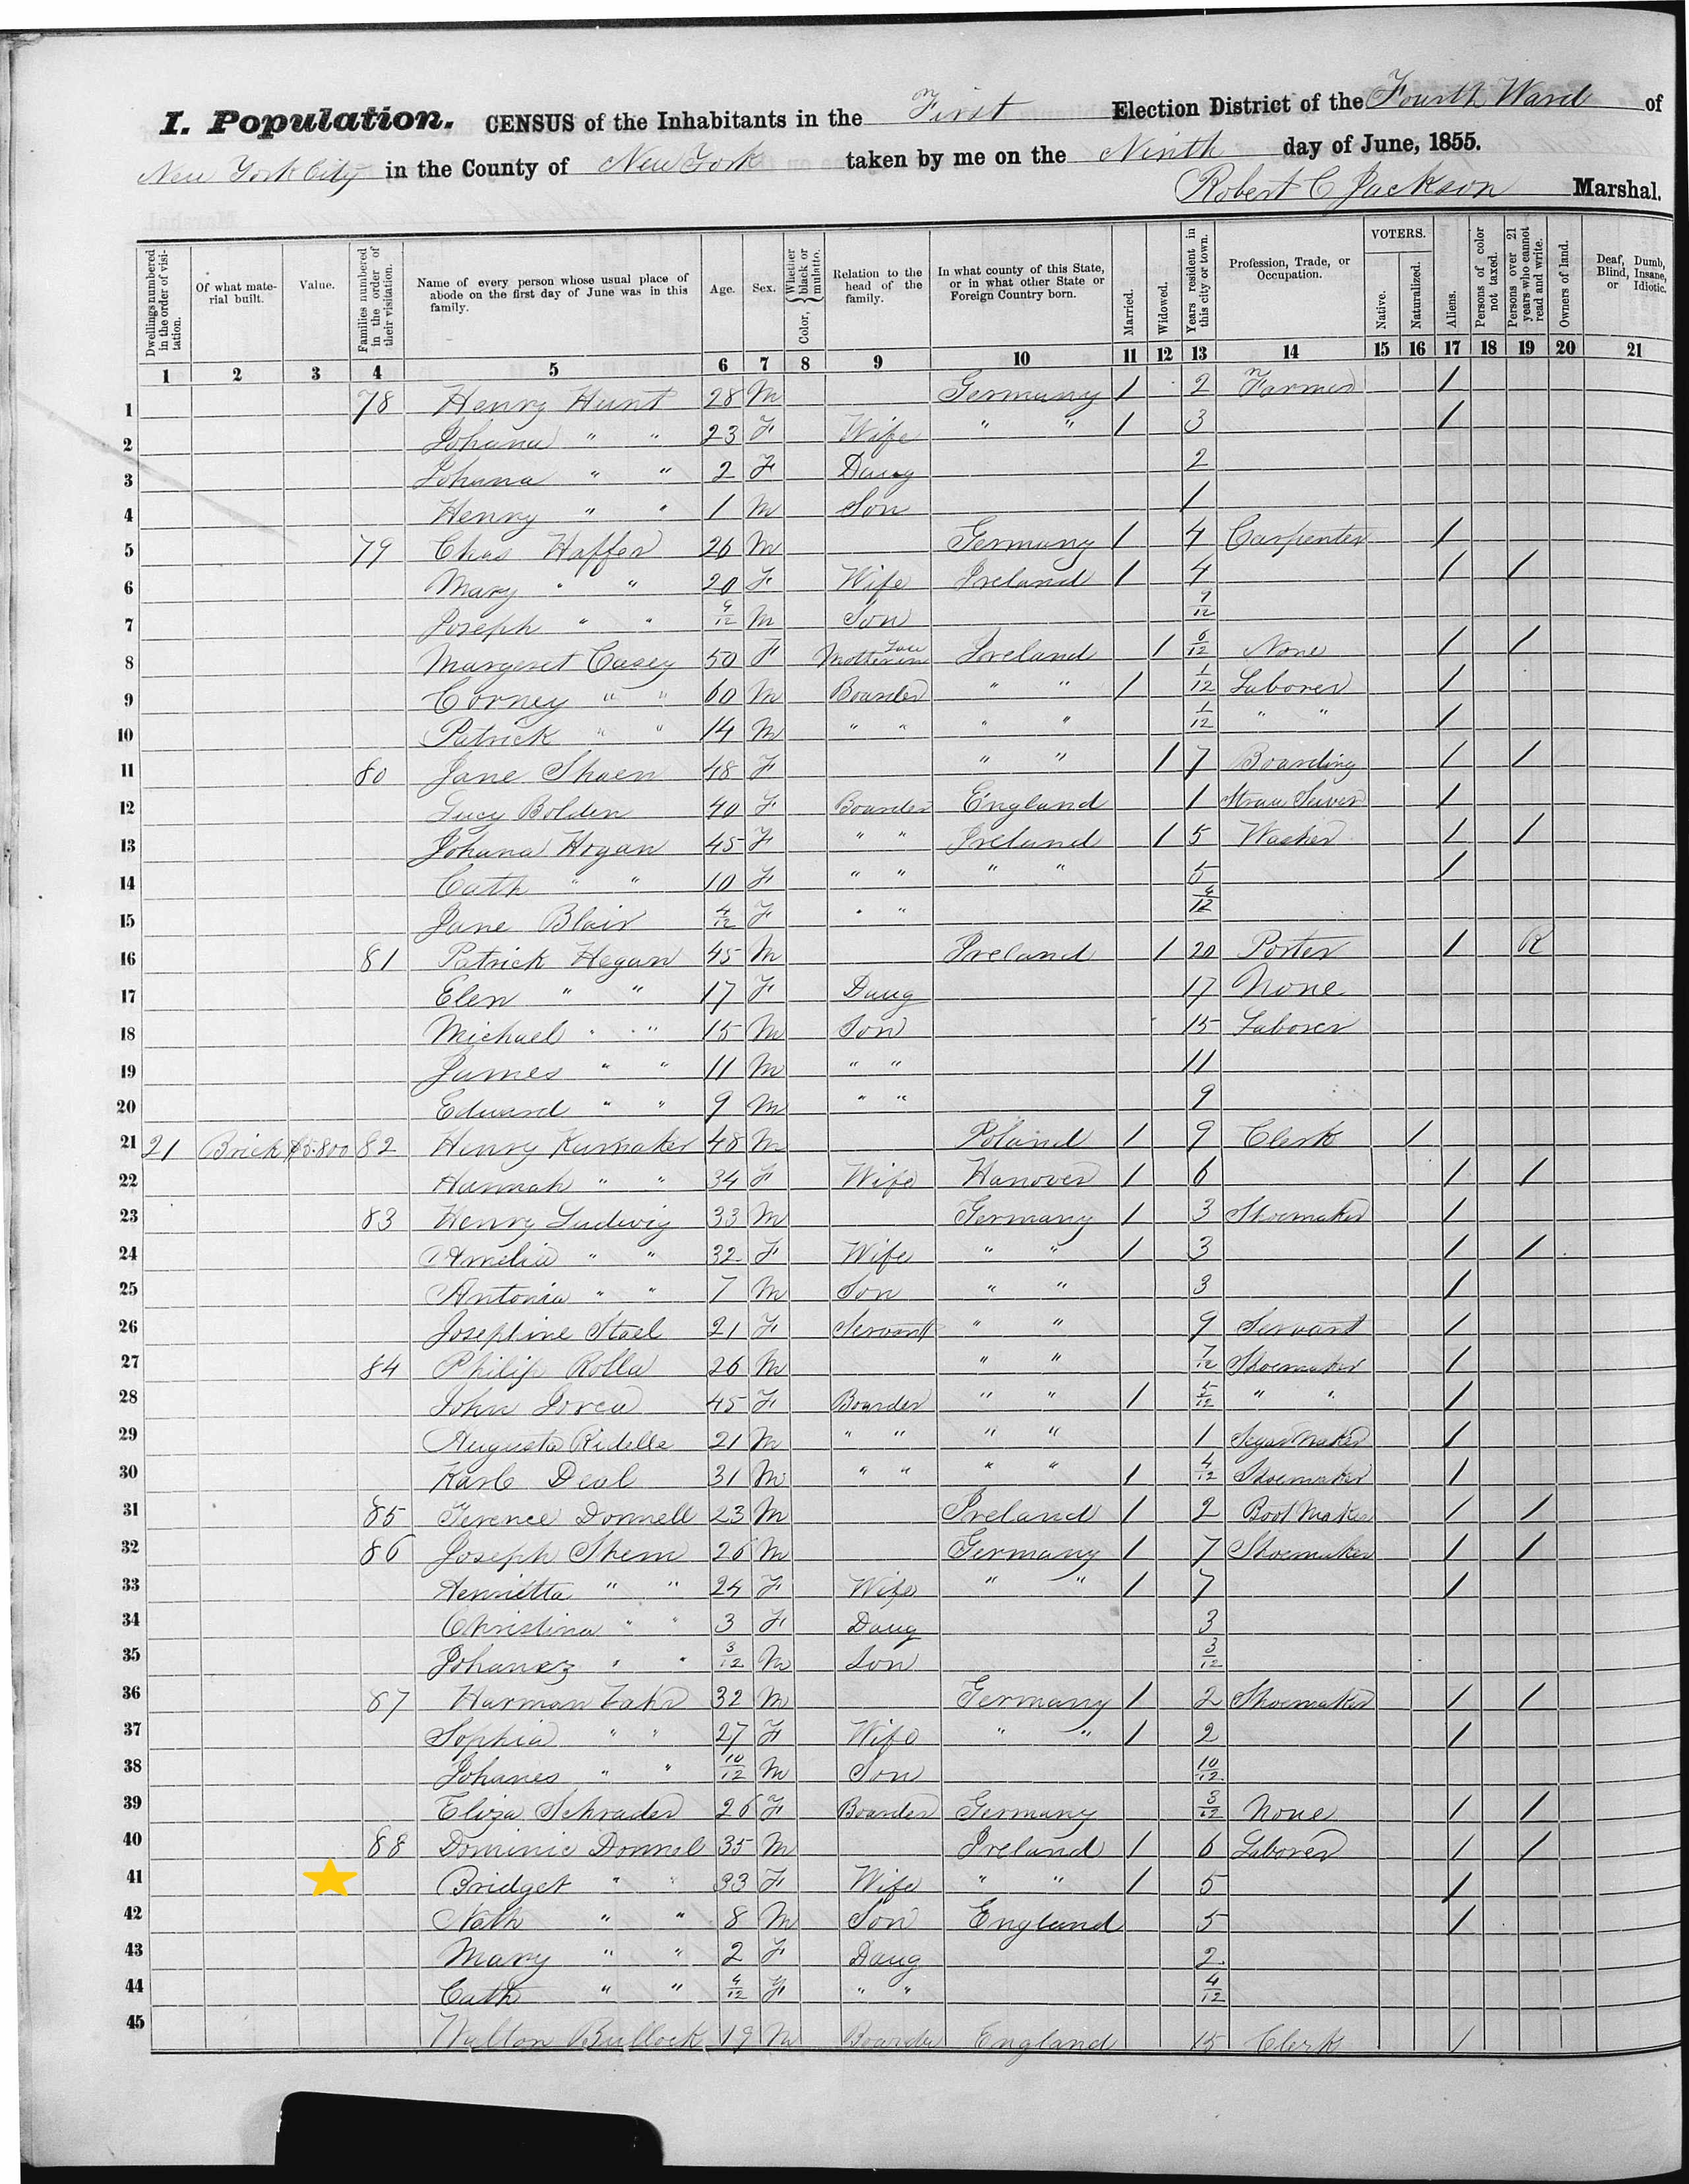 I. Population. CENSUS of the Inhabitants in the First Election District of the Fourth Ward of
New York City in the County of New York taken by me on the Ninth day of June, 1855.
Robert C Jackson Marshal.
Dwellings numbered in the order of visitation. Of what material built. Value. Families numbered in the order of their visitation. Name of every person whose usual place of abode on the first day of June was in this family. Age. Sex. Color, { Whether black or mulatto. Relation to the head of the family. In what county of this State, or in what other State or Foreign Country born. Married. Widowed. Years resident in this city or town. Profession, Trade, or Occupation. VOTERS. Native. Naturalized. Aliens. Persons of color not taxed. Persons over 21 years who cannot read and write. Owners of land. Deaf, Dumb, Blind, Insane, or Idiotic.
1 2 3 4 5 6 7 8 9 10 11 12 13 14 15 16 17 18 19 20 21
1 78 Henry Hunt 28 M Germany / 2 Farmer /
2 Johana " " 23 F Wife " " / 3 /
3 Johana " " 2 F Daug 2
4 Henry " " 1 M Son 1
5 79 Chas Haffer 26 M Germany / 4 Carpenter /
6 Mary " " 20 F Wife Ireland / 4 / /
7 Joseph " " 9/12 M Son 9/12
8 Margeret Casey 50 F Mother in Law Ireland / 6/12 None / /
9 Corney " " 60 M Boarder " " / 1/12 Laborer /
10 Patrick " " 14 M " " " " 1/12 " " /
11 80 Jane Shaen 48 F " " / 7 Boarding / /
12 Lucy Bolden 40 F Boarder England 1 Straw Sewer /
13 Johana Hogan 45 F " " Ireland / 5 Washer / /
14 Cath " " 10 F " " " " 5 /
15 Jane Blair 4/12 F " " 4/12
16 81 Patrick Hegan 45 M Ireland / 20 Porter / R
17 Elen " " 17 F Daug 17 None
18 Michael " " 15 M Son 15 Laborer
19 James " " 11 M " " 11
20 Edward " " 9 M " " 9
21 21 Brick $5.800 82 Henry Kurnaker 48 M Poland / 9 Clerk /
22 Hannah " " 34 F Wife Hanover / 6 / /
23 83 Henry Ludwig 33 M Germany / 3 Shoemaker /
24 Amelia " " 32 F Wife " " / 3 / /
25 Antonia " " 7 M Son " " 3 /
26 Josephine Stael 21 F Servant " " 9 Servant /
27 84 Philip Rolla 26 M " " 7/12 Shoemaker /
28 John 45 F Boarder " " / 5/12 " " /
29 Augusta Ridelle 21 M " " " " 1 Segar Maker /
30 Karl Deal 31 M " " " " / 4/12 Shoemaker /
31 85 Terence Donnell 23 M Ireland / 2 Boot Maker / /
32 86 Joseph Shem 26 M Germany / 7 Shoemaker / /
33 Henrietta " " 24 F Wife " " / 7 /
34 Christina " " 3 F Daug 3
35 Johanez " " 3/12 M Son 3/12
36 87 Harman Zahr 32 M Germany / 2 Shoemaker / /
37 Sophia " " 27 F Wife " " / 2 /
38 Johanes " " 10/12 M Son 10/12
39 Eliza Schrader 26 F Boarder Germany 3/12 None / /
40 88 Dominic Donnel 35 M Ireland / 6 Laborer / /
41 Bridget " " 33 F Wife " " / 5 /
42 Nath " " 8 M Son England 5 /
43 Mary " " 2 F Daug 2
44 Cath " " 4/12 F " " 4/12
45 Walton Bullock 19 M Boarder England 15 Clerk /